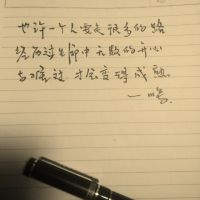 也许一个人要走很多的路
经历过生命中无数的开心
与难过 才会变得成熟